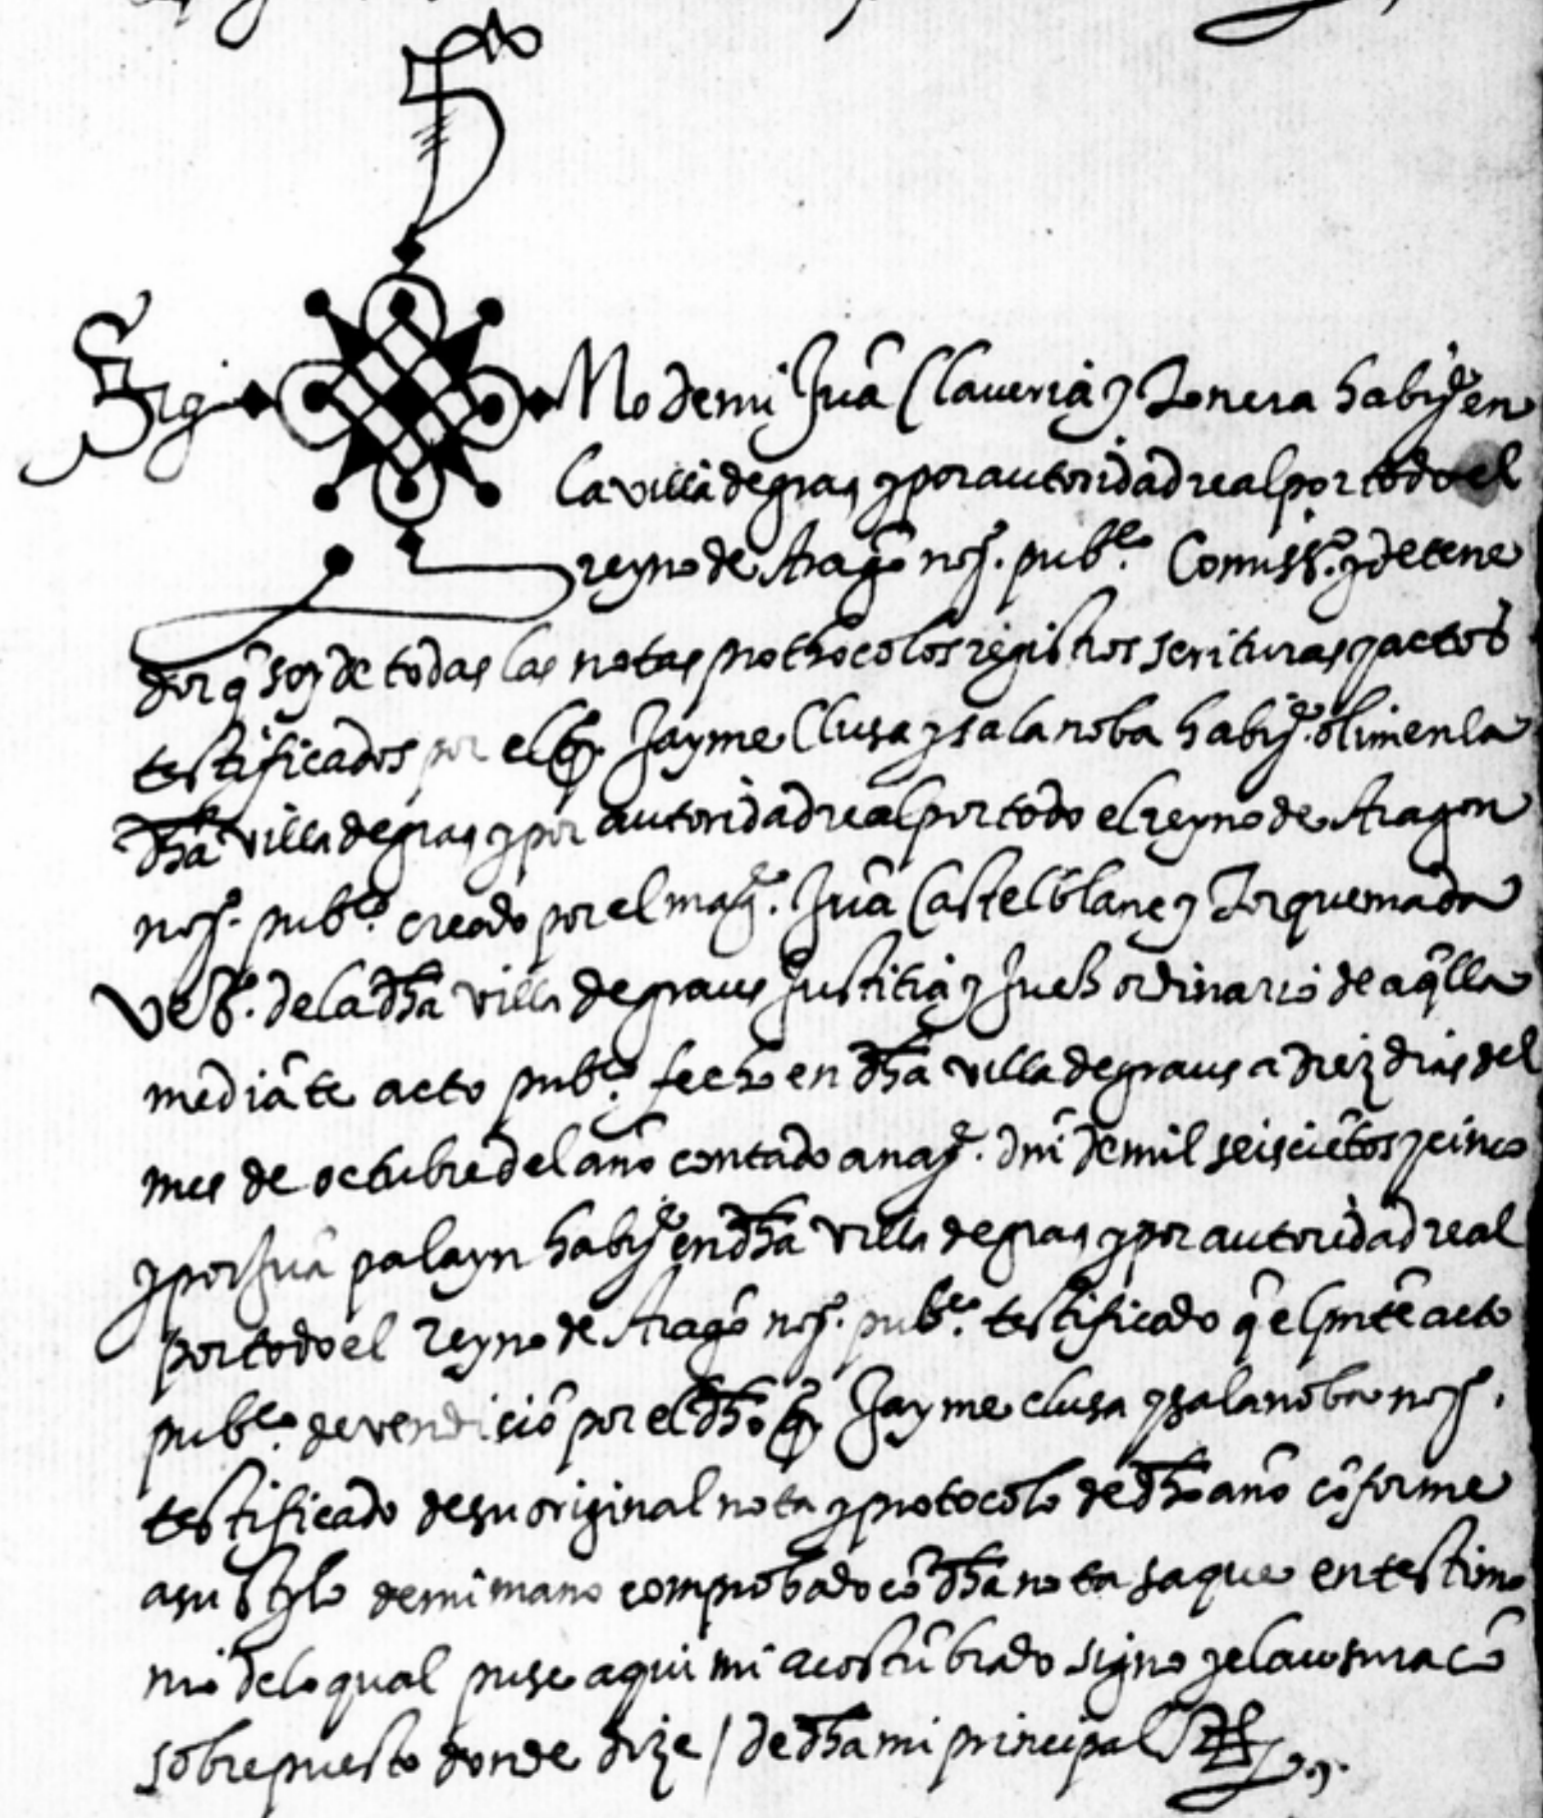 Sig No de mi Juā Claueria y Zonera habi.te en
la villa de graus y por autoridad real por todo el
reyno de Aragō not. pub.co Comiss.o y detene
dor q̄ soy de todas las notas prothocolos registros scrituras y actos
testificados por el q.o Jayme Clusa y salanoba habi.te olim en la
dha villa de graus y por autoridad real por todo el reyno de Aragon
not. pub.co creado por el mag.co Juā Castelblanc y Torquemada
de la dha villa de graus Justitia y Juez ordinario de aq̄lla
mediāte acto pub.co fecho en dha villa de graus a diez dias del
mes de octubre del año contado a nat.e dnī de mil seisciētos y cinco
y por Juā palayn habi.te en dha villa de graus y por autoridad real
por todo el reyno de Aragō not. pub.co testificado q̄ el pntē acto
pub.co de vendiciō por el dho q.o Jayme clusa y salanoba not.
testificado de su original nota y protocolo de dho año cōforme
a su stylo de mi mano comprobado cō dha nota saque en testimo
nio de lo qual puse aqui mi acostūbrado signo y clausura cō
sobrepuesto donde dize / de dha mi principal